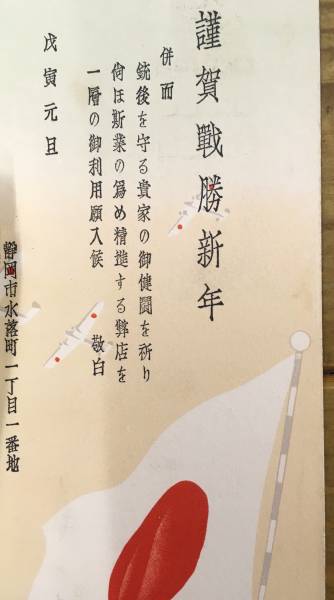 謹賀戰勝新年
併而
銃後を守る貴家の御健鬪を祈り
尙ほ斯業の爲め精進する弊店を
一層の御利用願入候
敬白
戊寅元旦
靜岡市水落町一丁目一番地